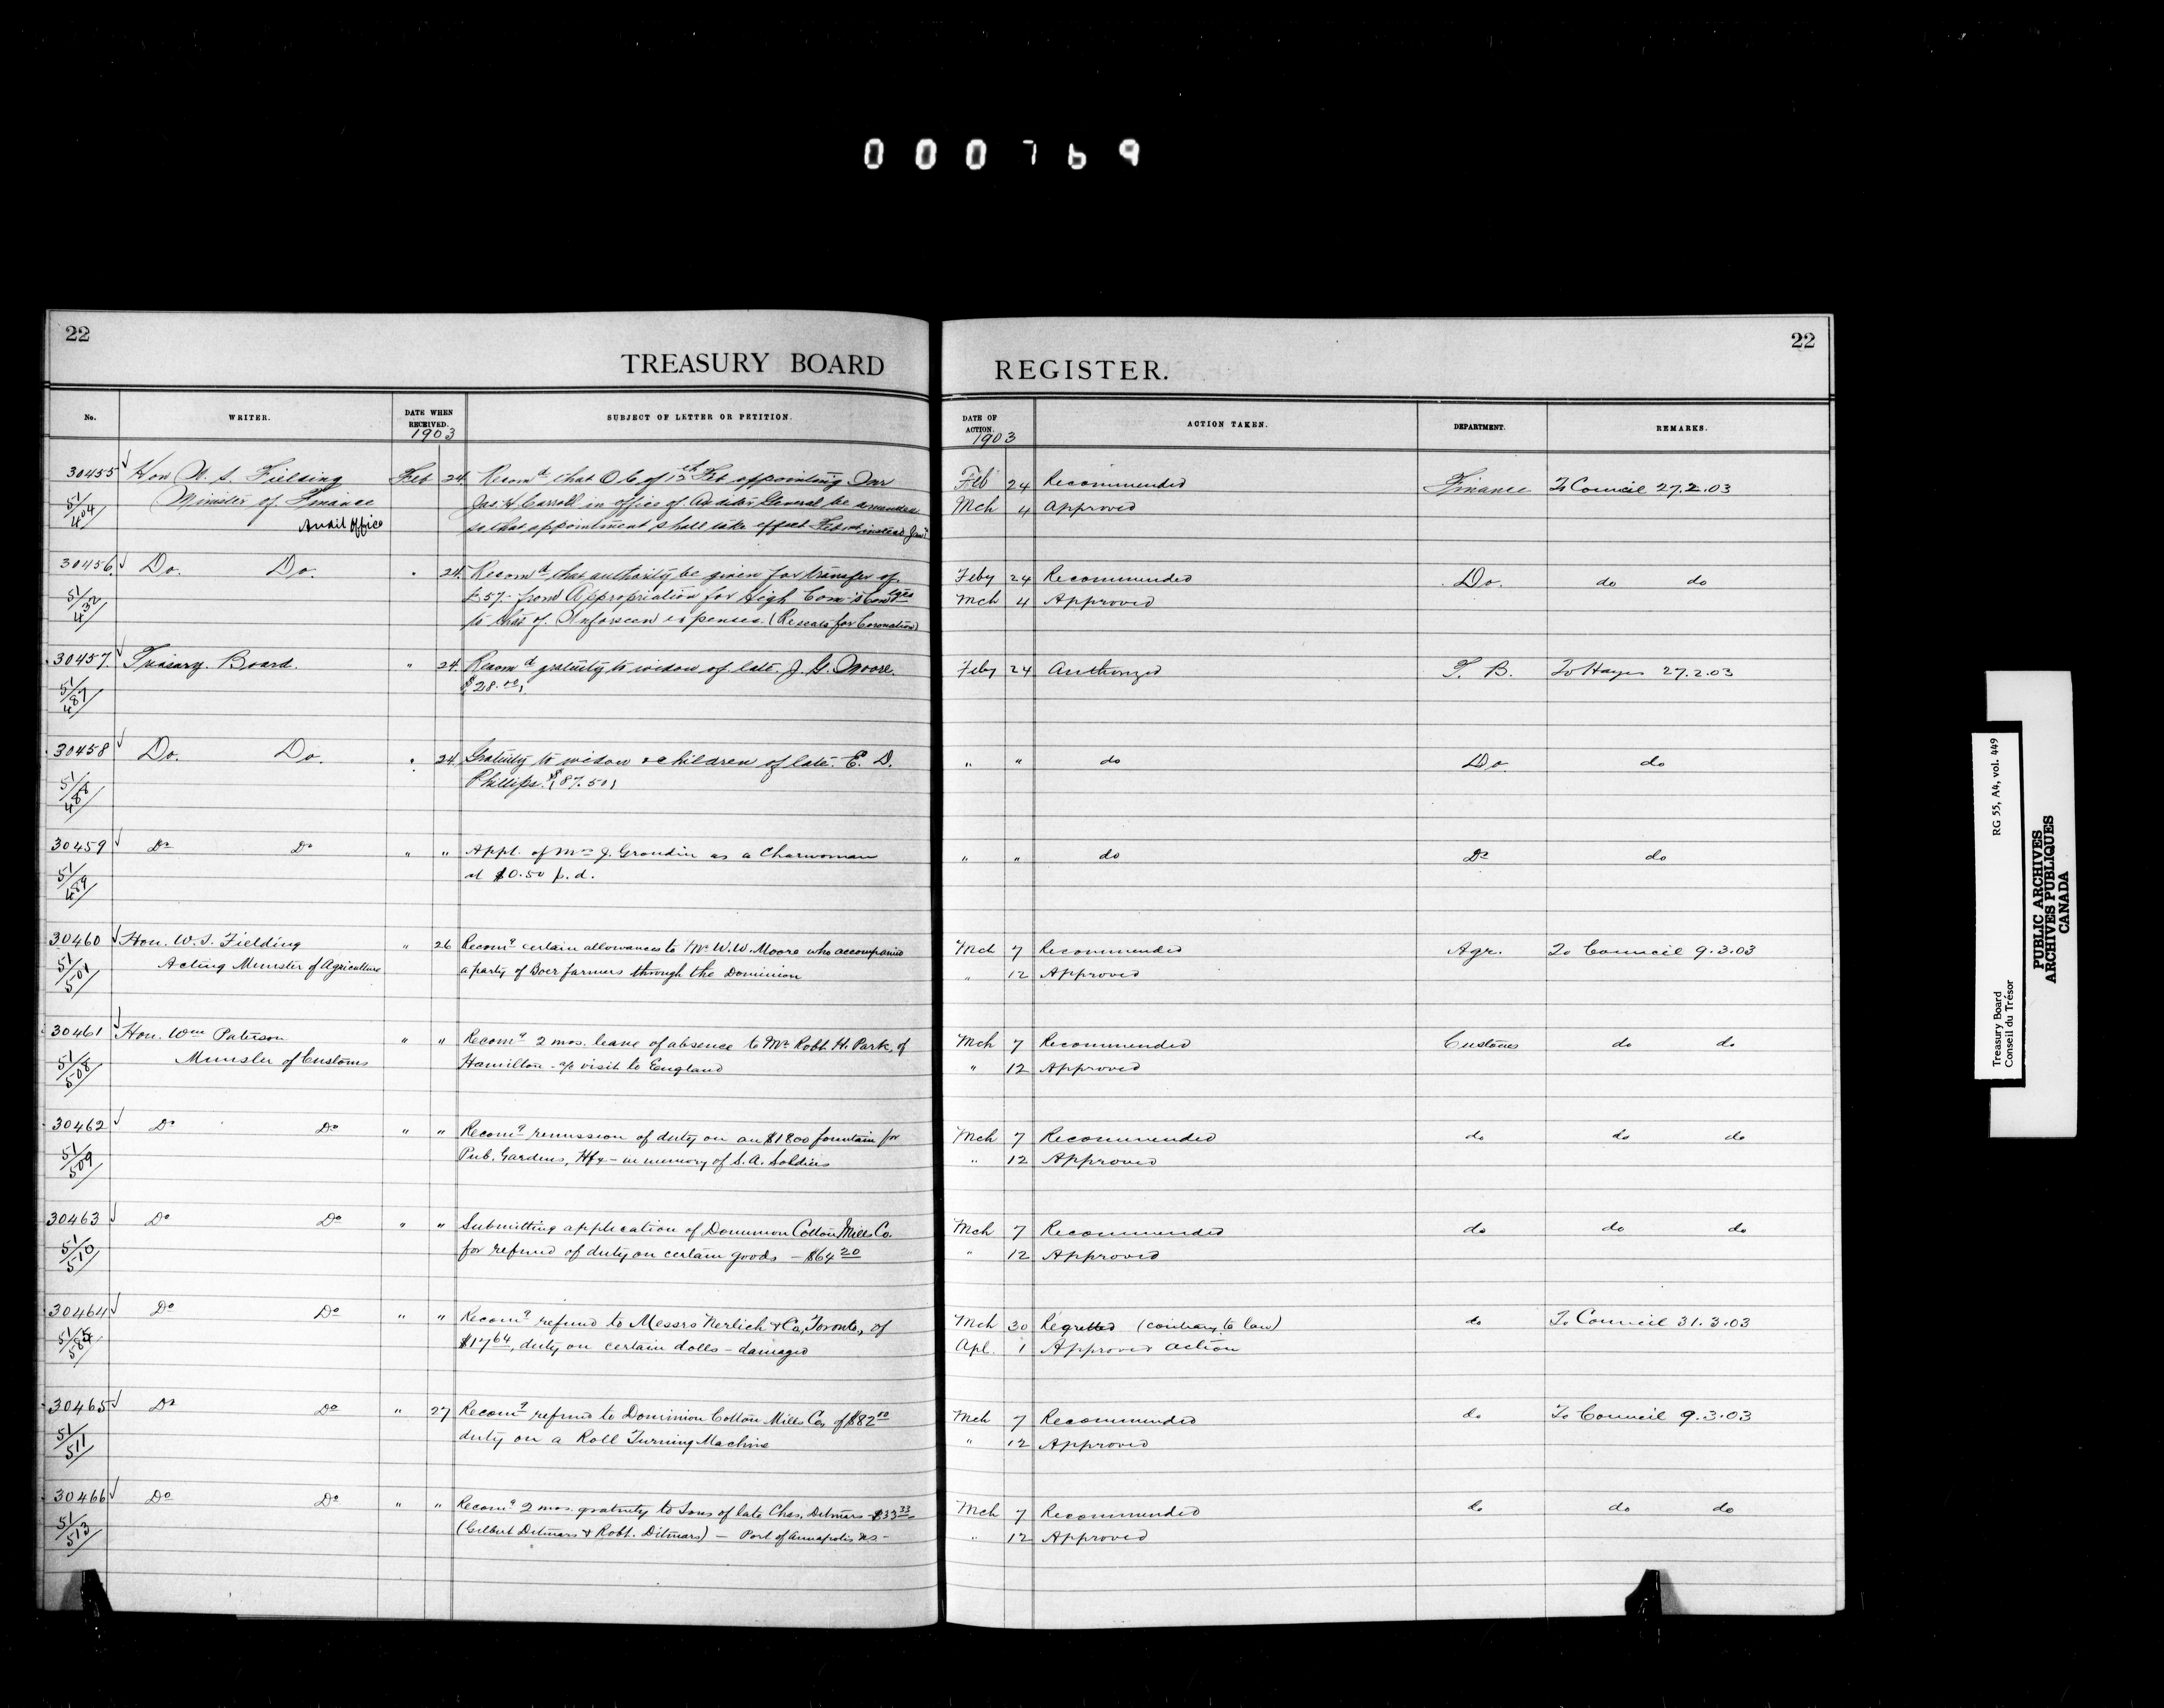 000769
22
22
TREASURY BOARD
REGISTER.
No.
WRITER.
DATE WHEN RECEIVED.
1903
SUBJECT OF LETTER OR PETITION.
DATE OF ACTION.
1903
ACTION TAKEN.
DEPARTMENT.
REMARKS.
30455 Hon W. S. Fielding Feb 24 Recomd that O C of 12th Feb appointing Jas. H. Carroll in office of Auditor General be amended
Feb 24 Recommended Finance To Council 27.2.03
51/404 Minister of Finance
Mch 4 Approved
Audit Office so that appointment shall take effect Feb instead
30456 Do. Do. " 24. Recomd that authority be given for transfer of
Feby 24 Recommended Do. do do
51/432 £57.- from Appropriation for High Com's Contges
Mch 4 Approved
to that of Unforseen expenses. (Re seats for Coronation)
30457 Treasury Board. " 24. Recomd gratuity to widow of late J. G. Moore.
Feby 24 Authorized T. B. To Hayes 27.2.03
51/487 $28.
30458 Do. Do. " 24. Gratuity to widow & children of late E. D.
" " do Do do
51/488 Phillips. $87.50
30459 Do Do " " Appt. of Mrs J. Grondin as a Charwoman
" " do Do do
51/489 at $0.50 p.d.
30460 Hon. W. S. Fielding " 26 Recomg certain allowances to Mr W. W. Moore who accompanied
Mch 7 Recommended Agr. To Council 9.3.03
51/501 Acting Minister of Agriculture a party of Boer farmers through the Dominion
" 12 Approved
30461 Hon. Wm Paterson " " Recomg 2 mos. leave of absence to Mr Robt. H. Park, of
Mch 7 Recommended Customs do do
51/508 Minister of Customs Hamilton - a/c visit to England
" 12 Approved
30462 Do Do " " Recomg remission of duty on an $1800 fountain for
Mch 7 Recommended do do do
51/509 Pub. Gardens, Hfx - in memory of S. A. Soldiers
" 12 Approved
30463 Do Do " " Submitting application of Dominion Cotton Mills Co.
Mch 7 Recommended do do do
51/510 for refund of duty on certain goods - $64.20
" 12 Approved
30464 Do Do " " Recomg refund to Messrs Nerlich & Co, Toronto, of
Mch 30 Regretted (contrary to law) do To Council 31.3.03
51/585 $17.64, duty on certain dolls - damaged
Apl. 1 Approved action
30465 Do Do " 27 Recomg refund to Dominion Cotton Mills Co, of $82
Mch 7 Recommended do To Council 9.3.03
51/511 duty on a Roll Turning Machine
" 12 Approved
30466 Do Do " " Recomg 2 mos. gratuity to Sons of late Chas. Ditmars - $33.33
Mch 7 Recommended do do do
51/513 (Gilbert Ditmars & Robt. Ditmars) - Port of Annapolis N.S. -
" 12 Approved
Treasury Board RG 55, A4, vol. 449
Conseil du Trésor
PUBLIC ARCHIVES
ARCHIVES PUBLIQUES
CANADA